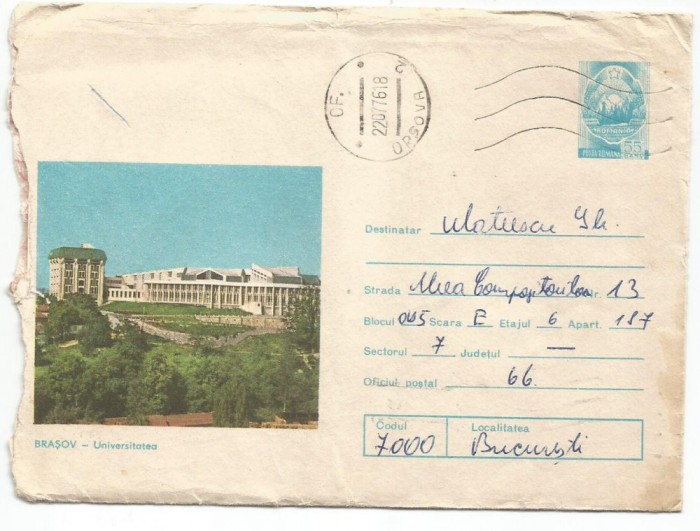 OF. ORȘOVA 2
22077618
POSTA ROMANA 55 BANI
Destinatar Mateescu Gh.
Strada Aleea Compozitorilor nr. 13
Blocul Scara E Etajul 6 Apart. 187
Sectorul 7 Județul —
Oficiul poștal 66.
Codul Localitatea
7000 București
BRAȘOV — Universitatea